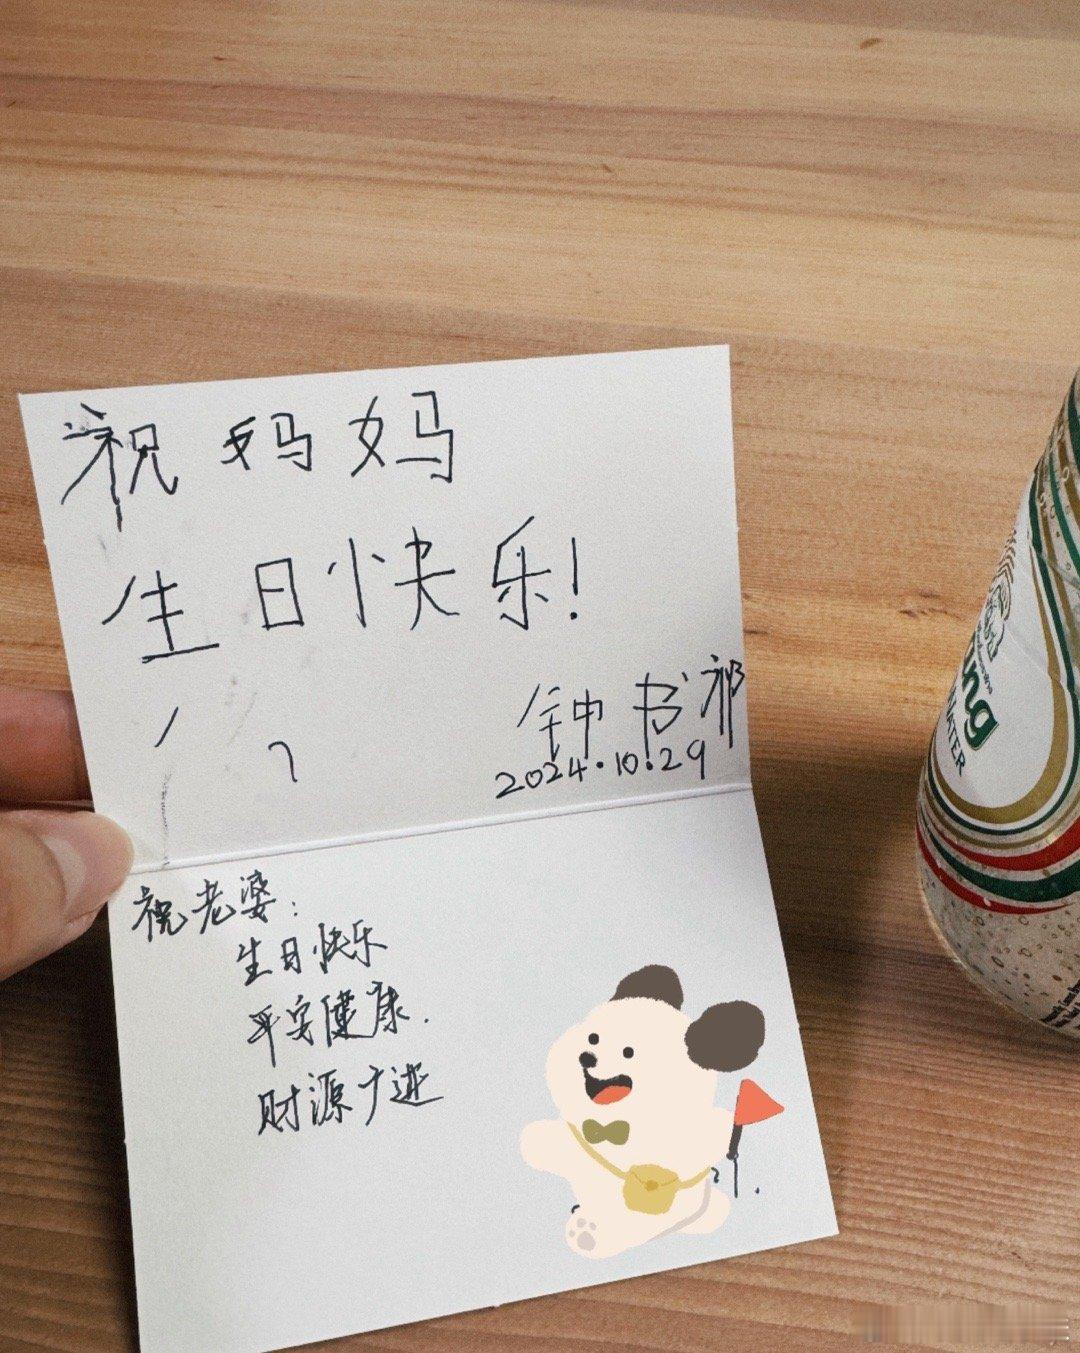 祝妈妈
生日快乐!
钟书祁
2024.10.29
祝老婆:
生日快乐
平安健康.
财源广进
ng
WATER